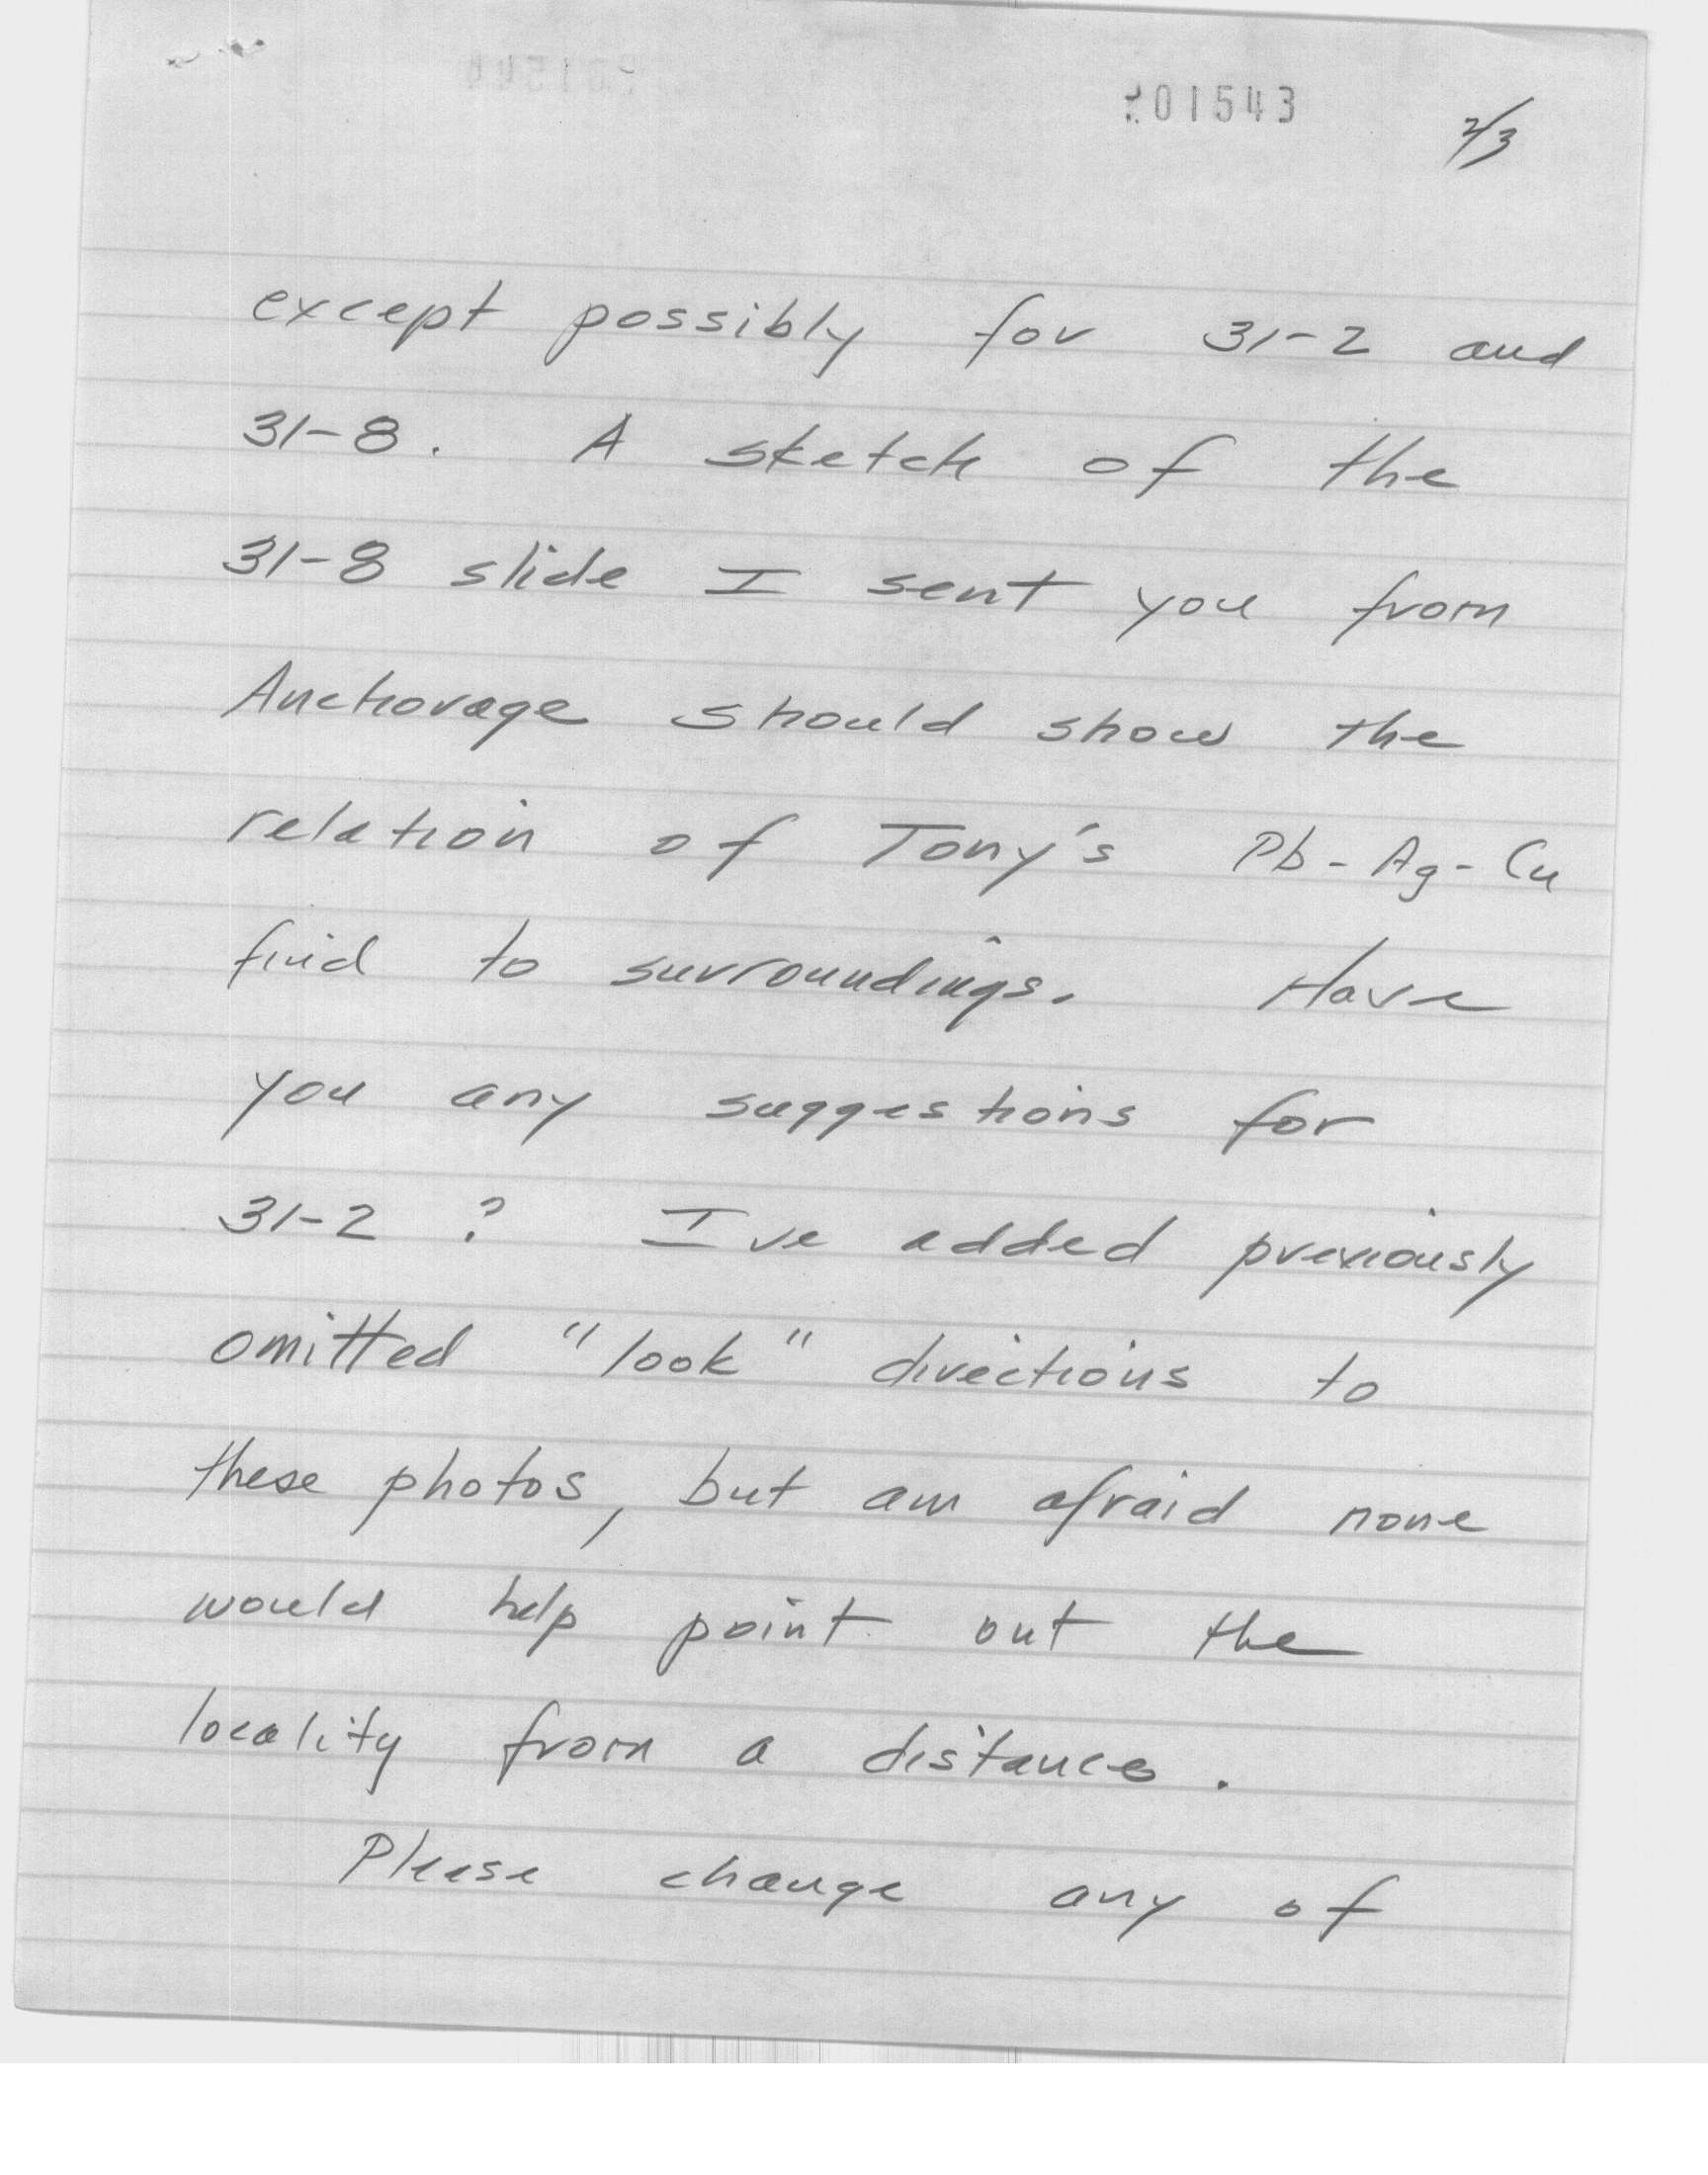 201543
2/3
except possibly for 31-2 and
31-8. A sketch of the
31-8 slide I sent you from
Anchorage should show the
relation of Tony's Pb-Ag-Cu
find to surroundings. Have
you any suggestions for
31-2? I've added previously
omitted "look" directions to
these photos, but am afraid none
would help point out the
locality from a distance.
Please change any of